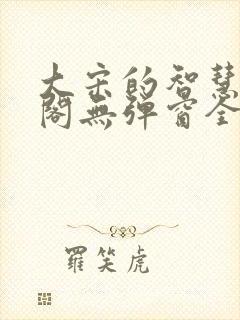 大宋的智慧
閣無彈窗全
羅笑虎